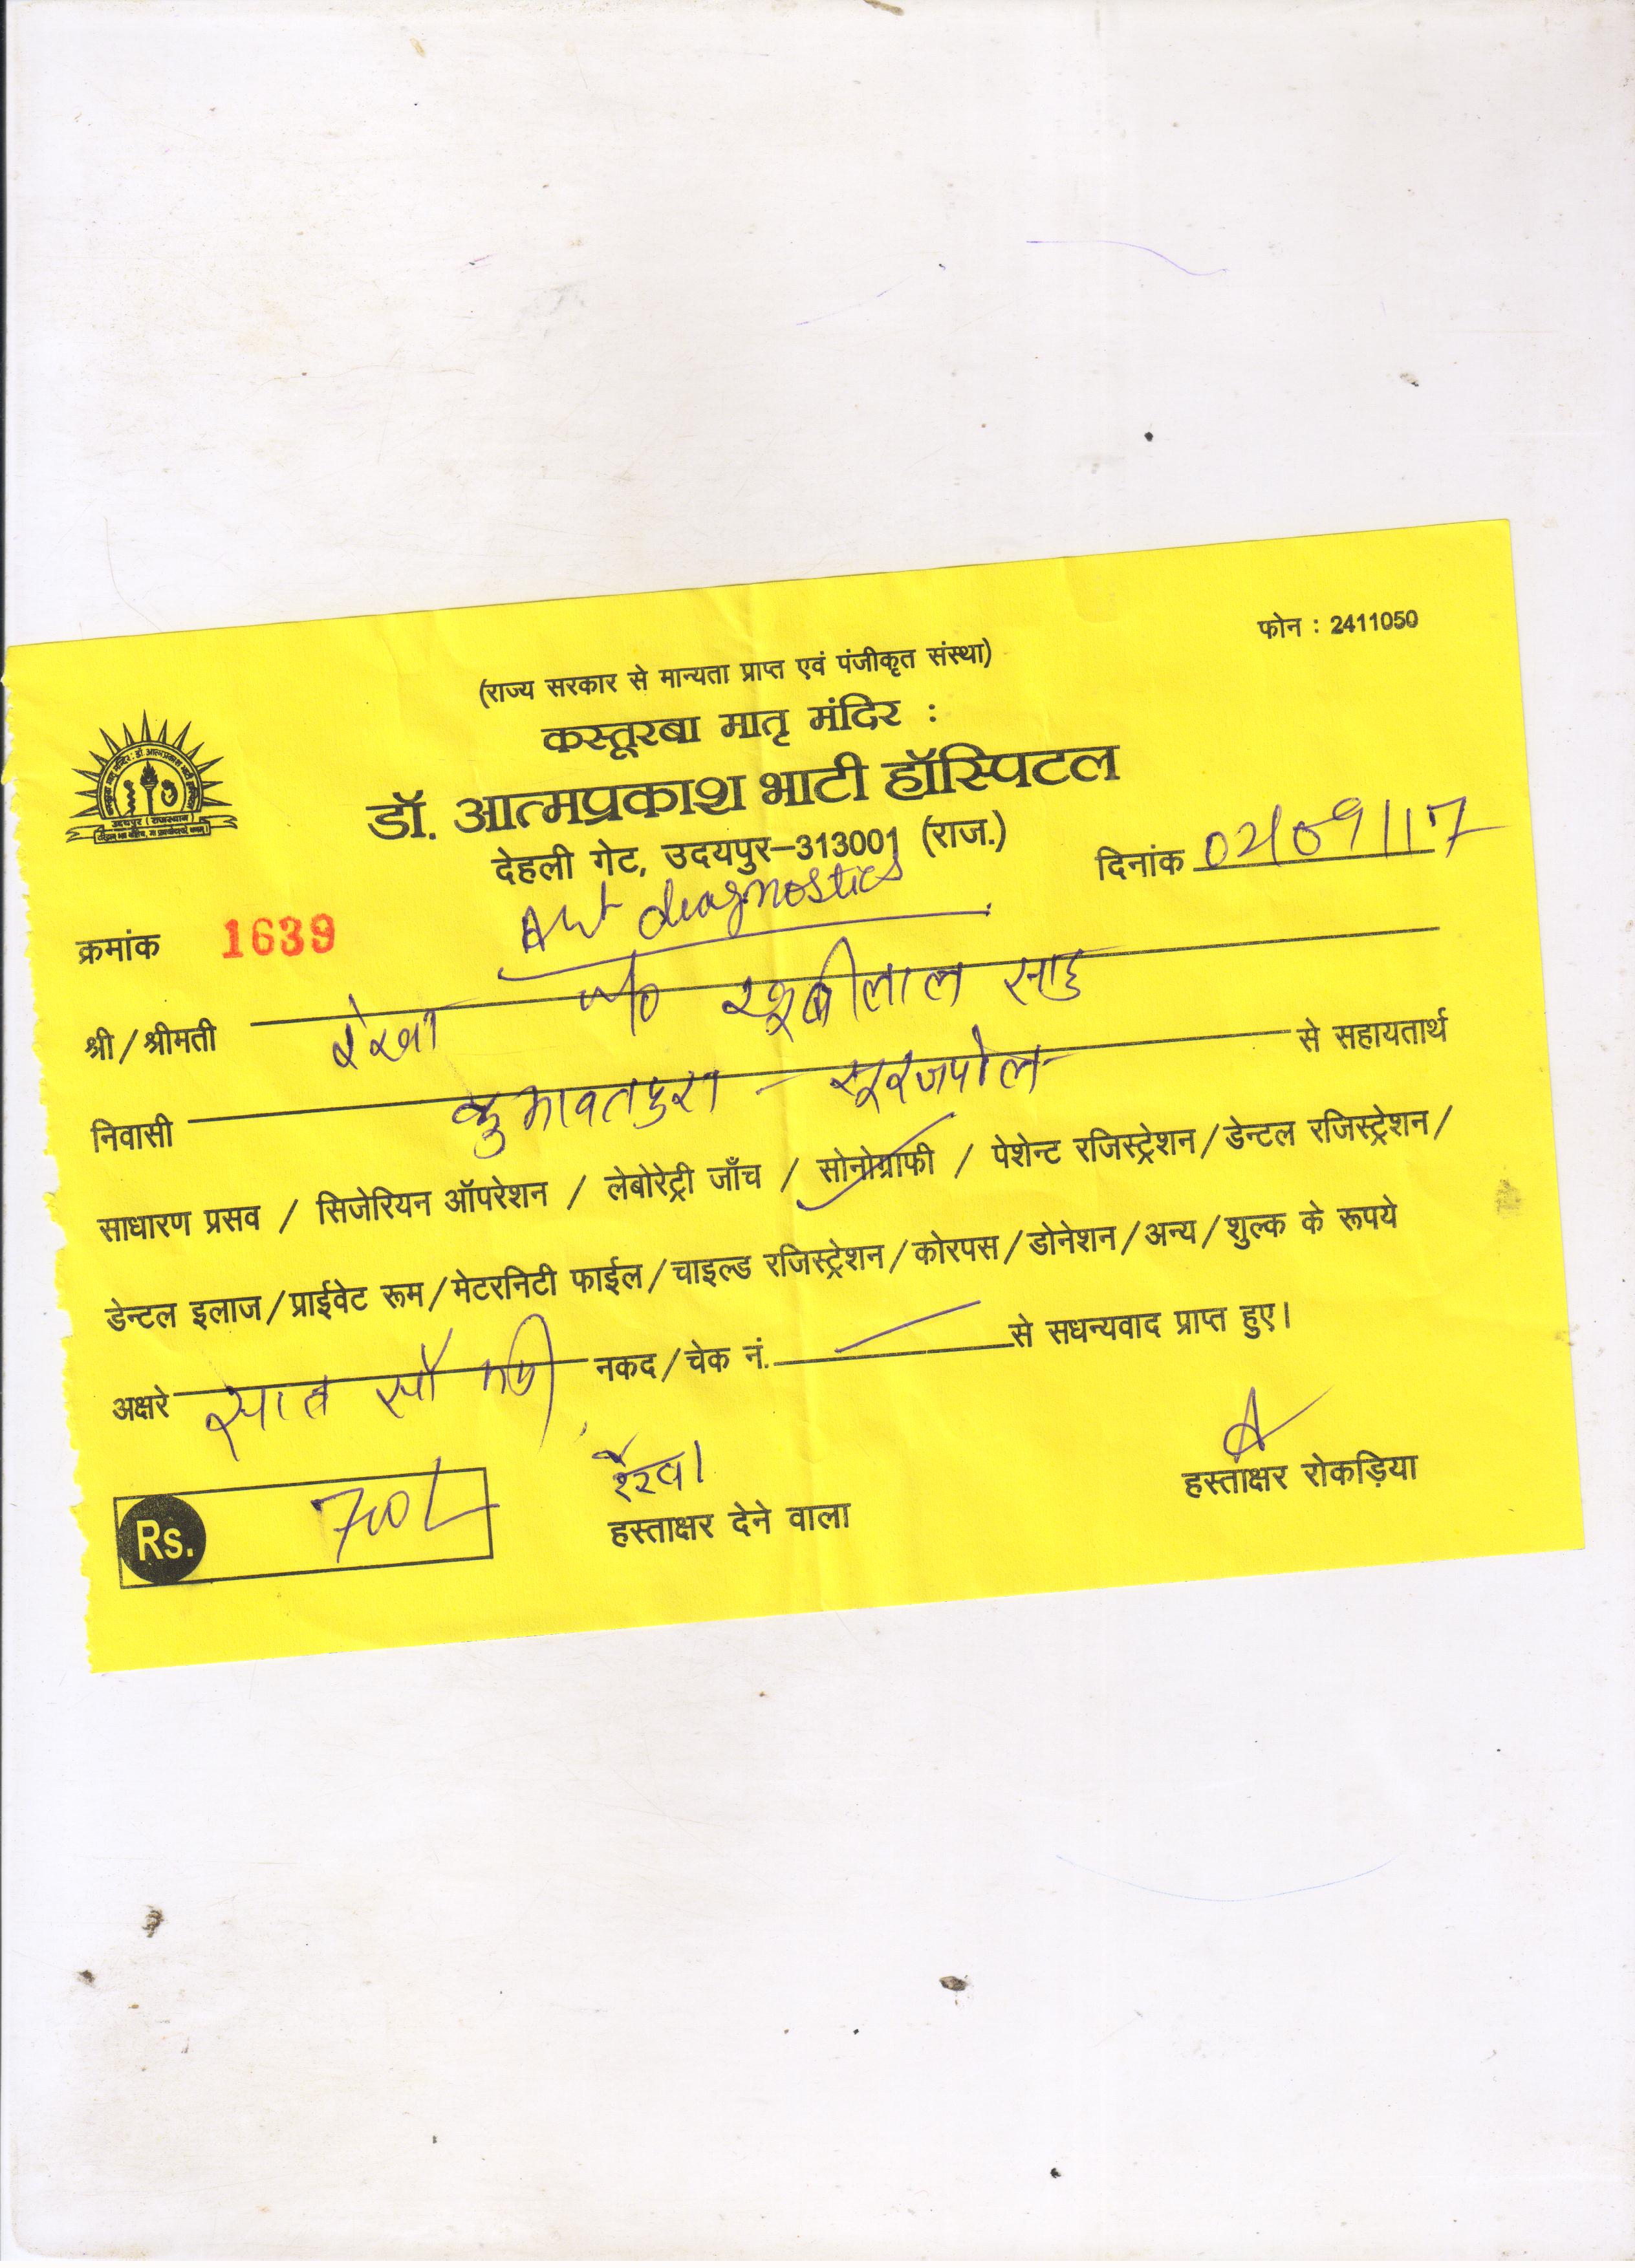 फोन : 2411050
(राज्य सरकार से मान्यता प्राप्त एवं पंजीकृत संस्था)
कस्तूरबा मातृ मंदिर :
डॉ. आत्मप्रकाश भाटी हॉस्पिटल
देहली गेट, उदयपुर-313001 (राज.)
दिनांक 02/09/17
diagnostics
क्रमांक 1639
श्री/श्रीमती रेखा w/o खूबीलाल साहु
निवासी कुमावतपुरा - सूरजपोल से सहायतार्थ
साधारण प्रसव / सिजेरियन ऑपरेशन / लेबोरेट्री जाँच / सोनोग्राफी / पेशेन्ट रजिस्ट्रेशन/डेन्टल रजिस्ट्रेशन/
डेन्टल इलाज/प्राईवेट रूम/मेटरनिटी फाईल/चाइल्ड रजिस्ट्रेशन/कोरपस/डोनेशन/अन्य/शुल्क के रूपये
अक्षरे सात सौ नकद/चेक नं. से सधन्यवाद प्राप्त हुए।
रेखा
Rs. 700/-
हस्ताक्षर देने वाला
हस्ताक्षर रोकड़िया